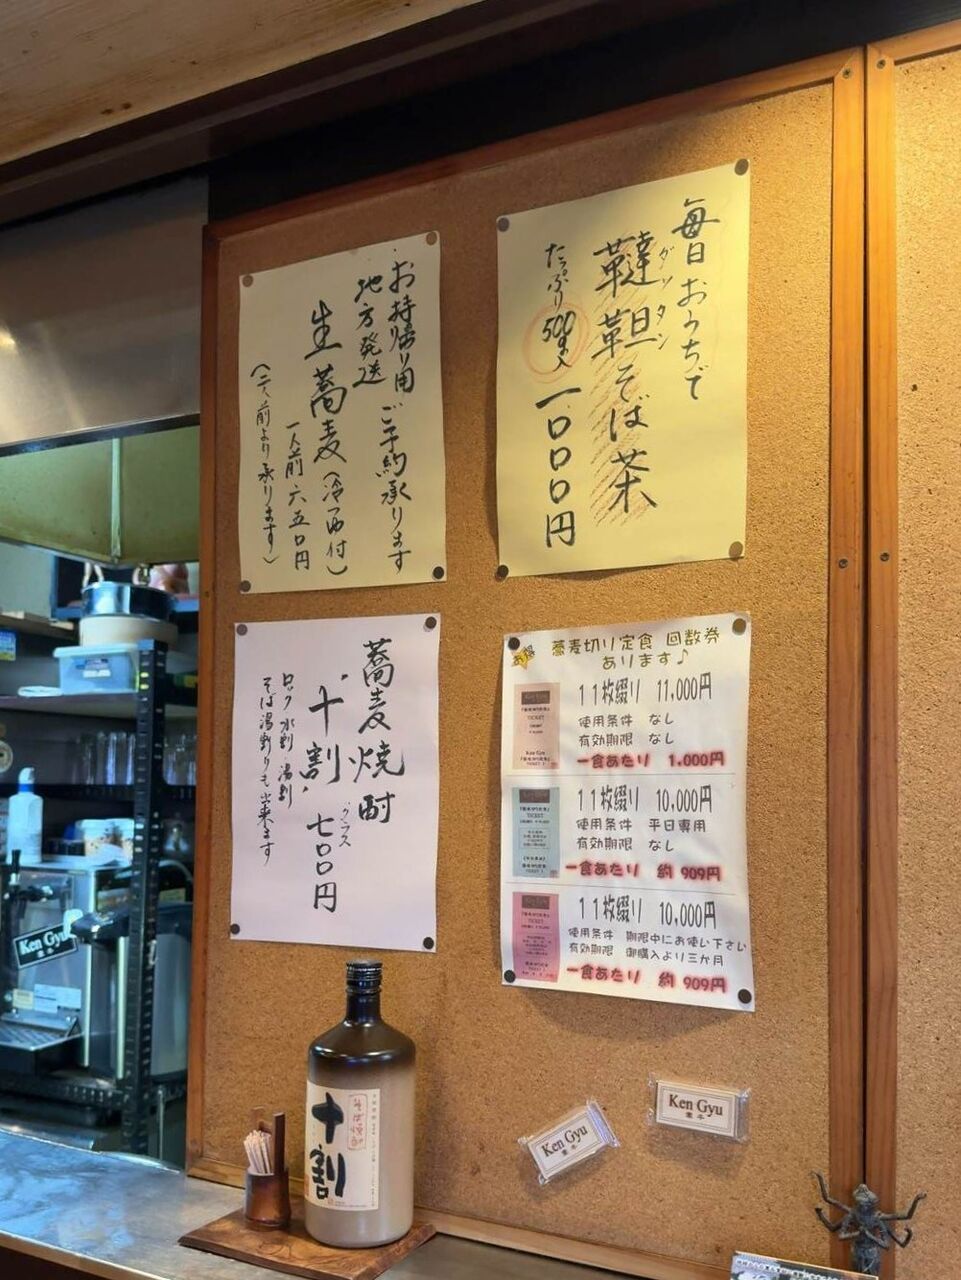 毎日おうちで
韃靼そば茶
ダッタン
たっぷり500g入
一〇〇〇円
お持帰り用
地方発送
ご予約承ります
生蕎麦(冷・西付)
一人前 六五〇円
(二人前より承ります)
蕎麦焼酎
"十割"
グラス
七〇〇円
ロック 水割 湯割
そば湯割りも出来ます
お得
蕎麦切り定食 回数券
あります♪
11枚綴り 11,000円
使用条件 なし
有効期限 なし
一食あたり 1,000円
11枚綴り 10,000円
使用条件 平日専用
有効期限 なし
一食あたり 約909円
11枚綴り 10,000円
使用条件 期限中にお使い下さい
有効期限 御購入より三か月
一食あたり 約909円
TICKET
Ken Gyu
TICKET
TICKET
Ken Gyu
十割
そば焼酎
Ken Gyu
牽牛
Ken Gyu
牽牛